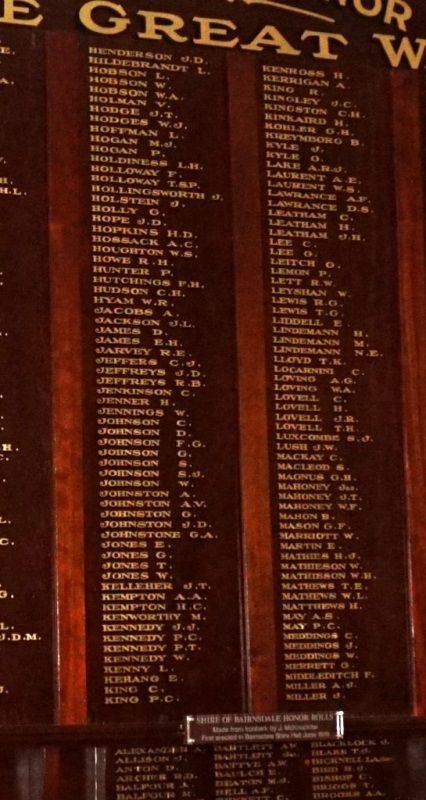 HONOR
E GREAT W
HENDERSON J.D.
HILDEBRANDT L.
HOBSON L.
HOBSON W.
HOBSON W.A.
HOLMAN V.
HODGE J.T.
HODGES W.J.
HOFFMAN L.
HOGAN M.J.
HOGAN P.
HOLDINESS L.H.
HOLLOWAY F.
HOLLOWAY T.S.P.
HOLLINGSWORTH J.
HOLSTEIN J.
HOLLY G.
HOPE J.D.
HOPKINS H.D.
HOSSACK A.C.
HOUGHTON W.S.
HOWE R.H.
HUNTER P.
HUTCHINGS F.H.
HUDSON C.H.
HYAM W.R.
JACOBS A.
JACKSON J.L.
JAMES D.
JAMES E.H.
JARVEY R.E.
JEFFERS C.J.
JEFFREYS J.D.
JEFFREYS R.B.
JENKINSON C.
JENNER H.
JENNINGS W.
JOHNSON C.
JOHNSON D.
JOHNSON F.G.
JOHNSON G.
JOHNSON S.
JOHNSON S.J.
JOHNSON W.
JOHNSTON A.
JOHNSTON A.V.
JOHNSTON G.
JOHNSTON J.D.
JOHNSTONE G.A.
JONES E.
JONES G.
JONES T.
JONES W.
KELLEHER J.T.
KEMPTON A.A.
KEMPTON H.C.
KENWORTHY M.
KENNEDY J.J.
KENNEDY P.C.
KENNEDY P.T.
KENNEDY W.
KENNY L.
KEHANG E.
KING C.
KING P.C.
KENROSS H.
KERRIGAN A.
KING R.
KINGLEY J.C.
KINGSTON C.H.
KINKAIRD H.
KOBLER G.H.
KREYMBORG B.
KYLE J.
KYLE O.
LAKE A.R.J.
LAURENT A.E.
LAURENT W.S.
LAWRANCE A.F.
LAWRANCE D.S.
LEATHAM C.
LEATHAM H.
LEATHAM J.H.
LEE C.
LEE G.
LEITCH G.
LEMON P.
LETT R.W.
LEYSHAN W.
LEWIS R.G.
LEWIS T.G.
LIDDELL E.
LINDEMANN H.
LINDEMANN M.
LINDEMANN N.E.
LLOYD T.K.
LOCARNINI C.
LOVING A.G.
LOVING W.A.
LOVELL C.
LOVELL H.
LOVELL J.R.
LOVELL T.H.
LUXCOMBE S.J.
LUSH J.W.
MACKAY C.
MACLEOD S.
MAGNUS G.H.
MAHONEY Jas.
MAHONEY J.T.
MAHONEY W.F.
MAHON B.
MASON G.F.
MARRIOTT W.
MARTIN E.
MATHIES H.J.
MATHIESON W.
MATHIESON W.H.
MATHEWS T.E.
MATHEWS W.L.
MATTHEWS H.
MAY A.S.
MAY P.C.
MEDDINGS C.
MEDDINGS J.
MEDDINGS W.
MERRETT G.
MIDDLEDITCH F.
MILLER A.J.
MILLER J.
J.D.M.
SHIRE OF BAIRNSDALE HONOR ROLLS
ALEXANDER A.
ALLISON J.
ANTON D.
ARCHER R.D.
BALFOUR A.
BALFOUR M.
BARTLETT A.W.
BARTLETT
BATTY A.W.
BAULCH E.
BEATON M.J.
BELL A.F.
BLACKLOCK J.
BLAKE T.J.
BICKNELL
BIRD R.J.
BISHOP C.
BRIGGS T.